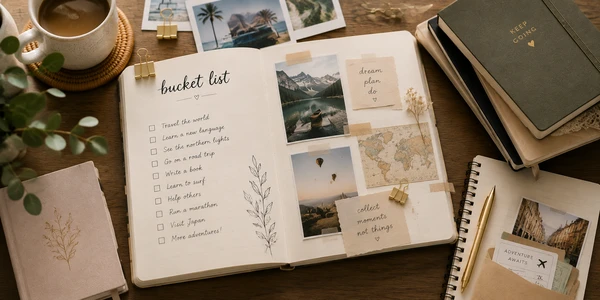 bucket list
Travel the world
Learn a new language
See the northern lights
Go on a road trip
Write a book
Learn to surf
Help others
Run a marathon
Visit Japan
More adventures!
dream
plan
do
collect
moments
not things
KEEP
GOING
ADVENTURE
AWAITS